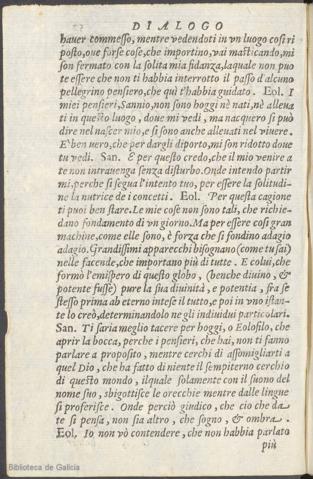 DIALOGO
hauer commesso, mentre vedendoti in vn luogo così ri
posto, oue forse cose, che importino, vai masticando, mi
son fermato con la solita mia fidanza, laquale non puo
te essere che non ti habbia interrotto il passo d'alcuno
pellegrino pensiero, che quì t'habbia guidato. Eol. I
miei pensieri, Sannio, non sono hoggi nè nati, nè alleua
ti in questo luogo, doue mi vedi, ma nacquero si può
dire nel nascer mio, e si sono anche alleuati nel viuere.
E' ben uero, che per dargli diporto, mi son ridotto doue
tu vedi. San. E per questo credo, che il mio venire a
te non intrauenga senza disturbo. Onde intendo partir
mi, perche si segua l'intento tuo, per essere la solitudi-
ne la nutrice de i concetti. Eol. Per questa cagione
ti puoi ben stare. Le mie cose non sono tali, che richie-
dano fondamento di vn giorno. Ma per essere così gran
machine, come elle sono, è forza che si fondino adagio
adagio. Grandissimi apparecchi bisognano (come tu sai)
nelle facende, che importano più di tutte. E colui, che
formò l'emispero di questo globo, (benche diuino, &
potente fusse) pure la sua diuinità, e potentia, fra se
stesso prima ab eterno intese il tutto, e poi in vno istan-
te lo creò, determinandolo ne gli indiuidui particolari.
San. Ti saria meglio tacere per hoggi, o Eolofilo, che
aprir la bocca, perche i pensieri, che hai, non ti fanno
parlare a proposito, mentre cerchi di assomigliarti a
quel Dio, che ha fatto di niente il sempiterno cerchio
di questo mondo, ilquale solamente con il suono del
nome suo, sbigottisce le orecchie mentre dalle lingue
si proferisce. Onde perciò giudico, che cio che da
te si pensa, non sia altro, che sogno, & ombra.
Eol. Io non vò contendere, che non habbia parlato
più
Biblioteca de Galicia